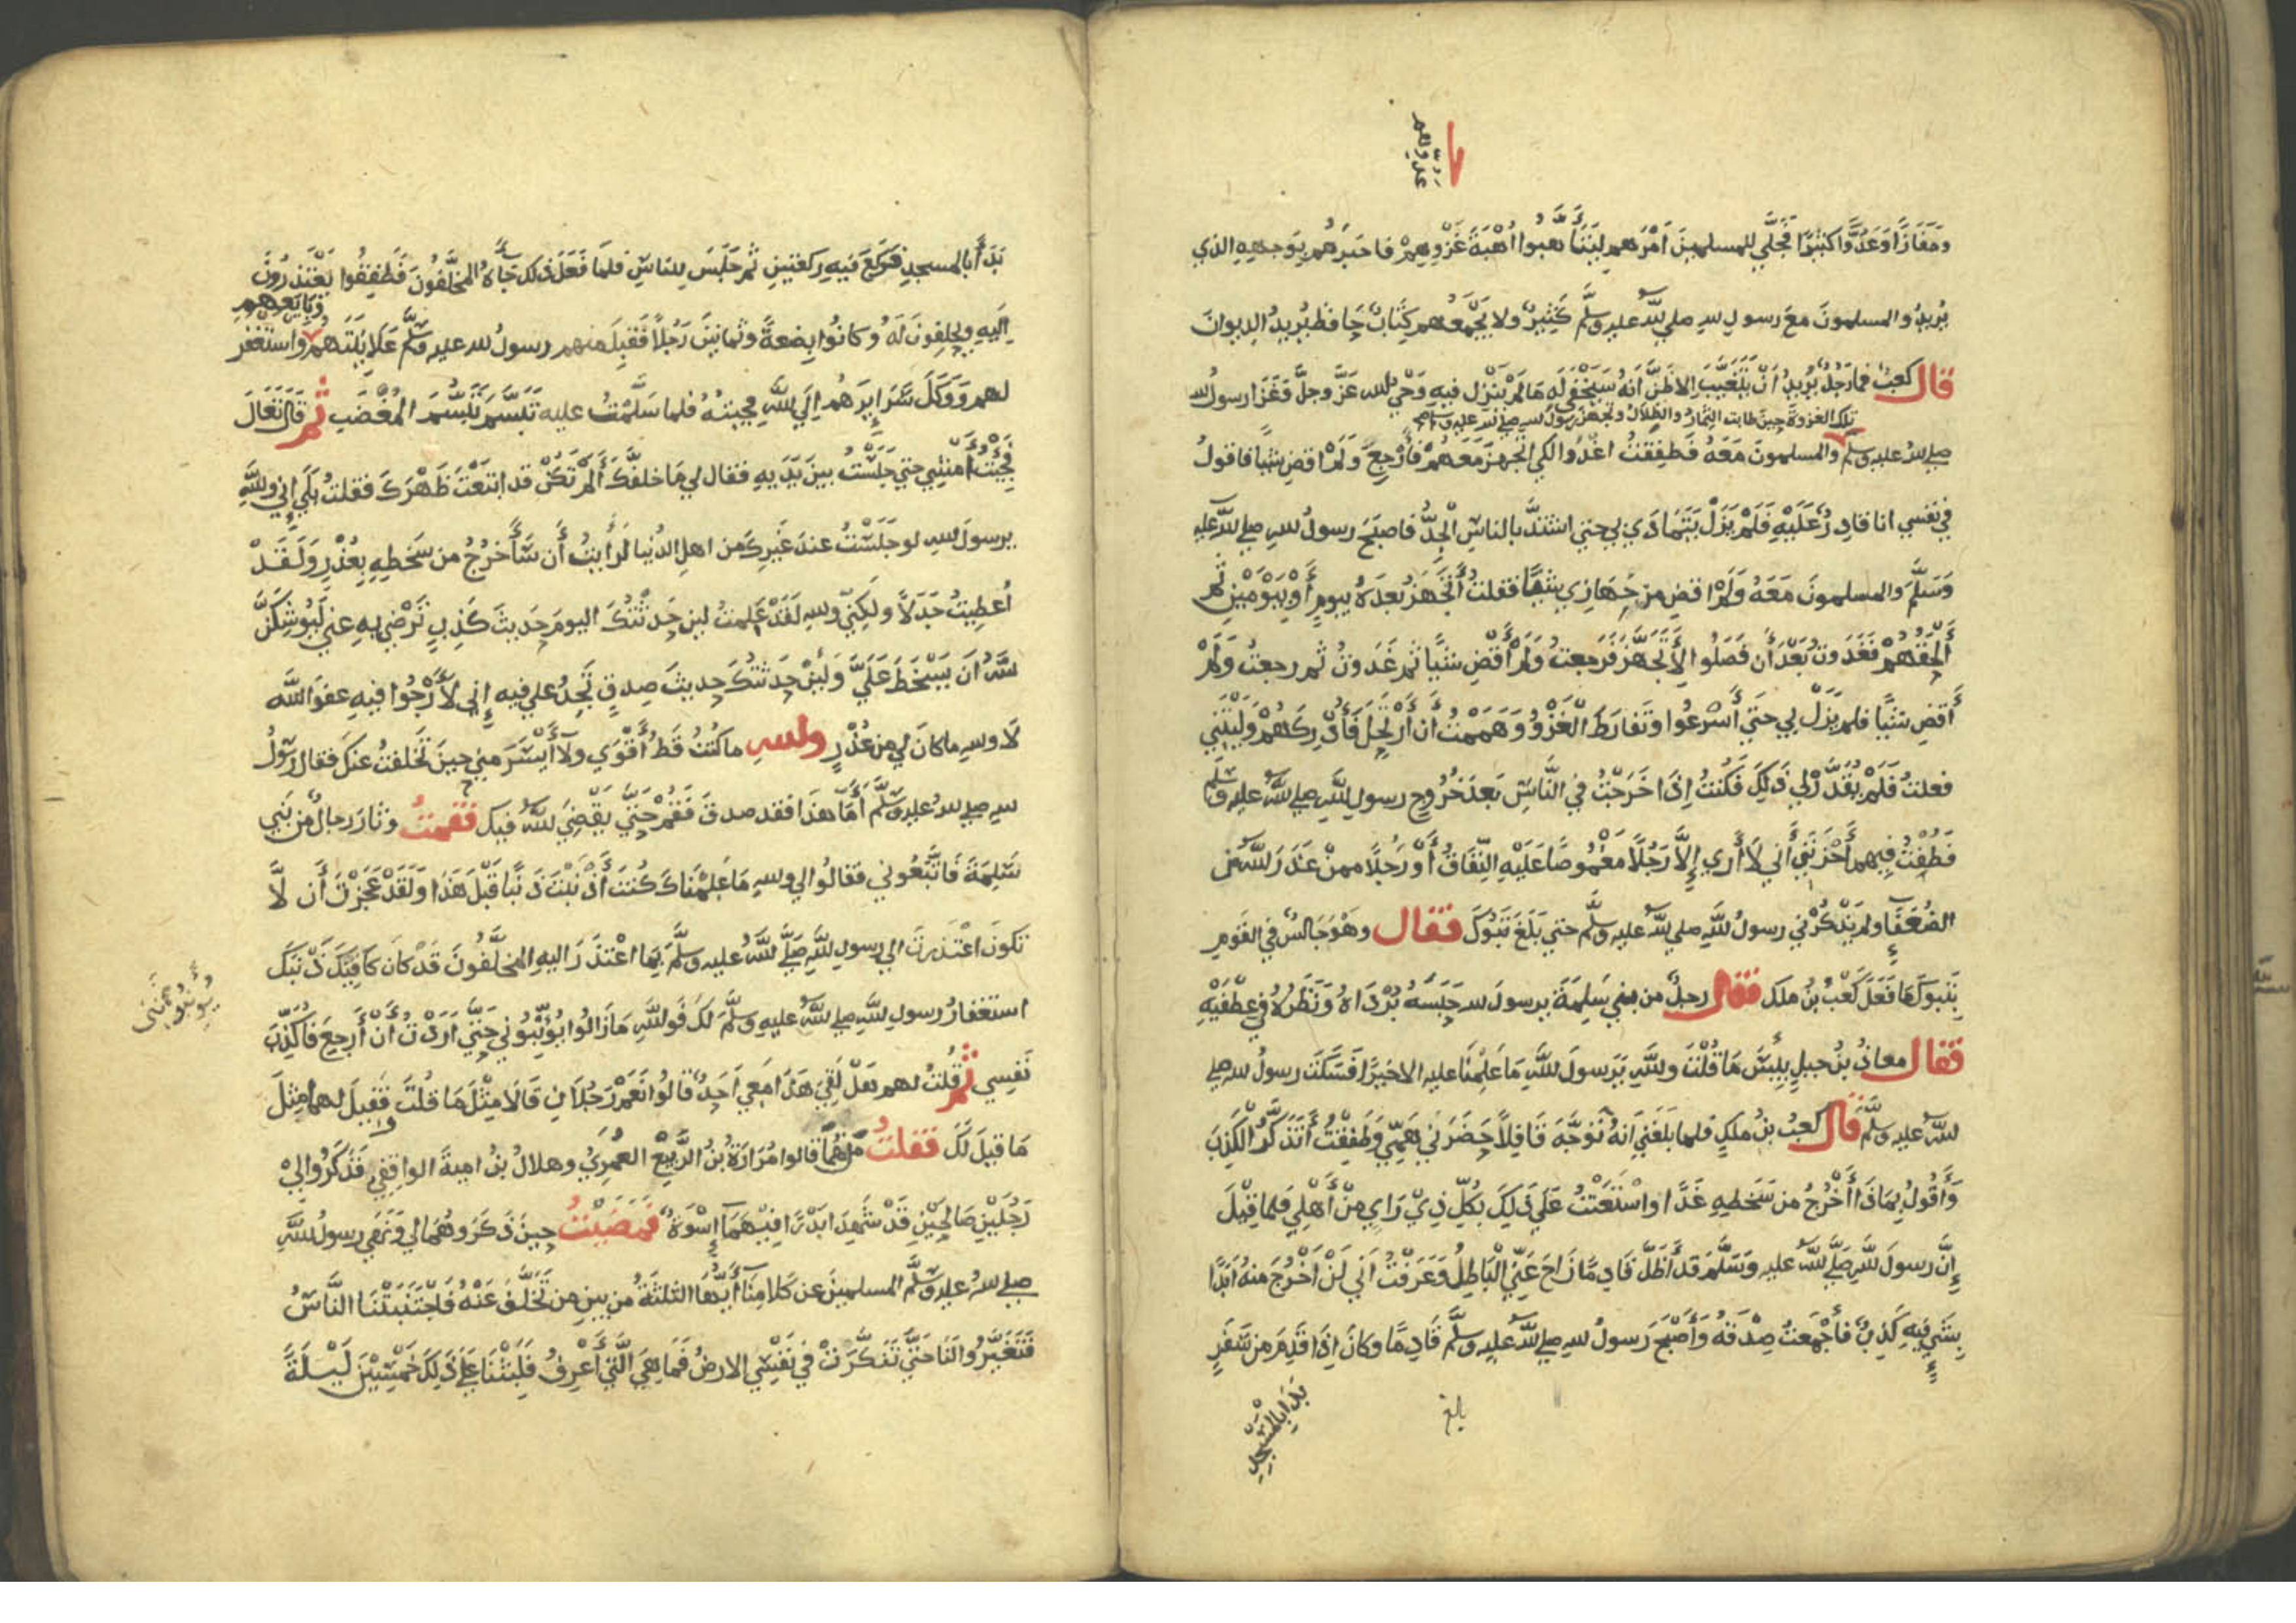 عدوهم
ومَفَازًا وَعَدُوًّا كثيرًا فَجَلَّى للمسلمين اَمْرَهم ليَتَأَهبوا اُهْبَةَ غَزْوِهِمْ فاخبَرَهُم بوَجههِ الذي
يُريدُ والمسلمونَ معَ رسولِ اللهِ صلي اللهُ عليه وسلَّم كَثِيرٌ ولا يَجْمَعُهم كِتَابٌ حَافظ يُريدُ الديوانَ
قال كعبٌ فما رَجُلٌ يُريدُ اَنْ يَتَغَيَّبَ الا ظَنَّ اَنهُ سَيَخْفَي لَه مَا لَمْ يَنْزِل فيهِ وَحْيُ الله عَزَّ وجلَّ وَغَزَا رسولُ الله
تلك الغزوةَ حينَ طابت الثمارُ والظلالُ وتجهزَ رسولُ اللهِ صلي الله عليه وسلم
صلي اللهُ عليه وسلم والمسلمونَ مَعَهُ فَطفِقتُ اغْدُوا لكي اتجهزَ مَعَهُمْ فأرْجِعُ وَلَمْ اقضِ شيًا فاقولُ
في نفسي انا قادِرٌ عَلَيْهِ فَلَمْ يَزَلْ يَتَمَادَي بي حتي اشتدَّ بالناسِ الْجِدُّ فاصبَحَ رسولُ اللهِ صلي اللهُ عليه
وَسَلَّمَ والمسلمونَ مَعَهُ وَلَمْ اقضِ مِن جَهَازي شَيًا فقلتُ أَتَجَهزُ بَعدَهُ بيومٍ أَوْ يَوْمَيْنِ ثم
أَلْحَقُهُمْ فَغَدَوتُ بَعْدَ أَن فَصَلُوا لأَتَجَهَّزَ فَرَجعتُ وَلَمْ أَقْضِ شَيًا ثم غَدَوتُ ثم رجعتُ ولم
أَقضِ شَيًا فلم يَزَلْ بي حتي أَسْرَعُوا وتَفارَطَ الْغَزْوُ وَهَمَمْتُ أَن أَرْتَحِلَ فَأُدْرِكَهُمْ وَلَيْتَنِي
فعلتُ فَلَمْ يُقَدَّرْ لي ذَلِكَ فَكُنتُ إِذَا خَرَجْتُ في النَّاسِ بَعدَ خُرُوجِ رسولِ اللهِ صلي اللهُ عليه وسلم
فَطُفْتُ فِيهم أَحْزَنَنِي أَني لاَ أَرَي إِلاَّ رَجُلًا مَغْمُوصًا عَلَيْهِ النِّفَاقُ أَوْ رَجُلًا ممنْ عَذَرَ اللهُ من
الضُعَفَاءِ ولم يَذْكُرْني رسولُ اللهِ صلي اللهُ عليه وسلَّم حتي بَلَغَ تَبُوكَ فقال وهْوَ جَالسٌ في القَومِ
بتَبوكَ مَا فَعَلَ كَعْبُ بنُ ملكٍ فقال رجلٌ من بني سَلِمَةَ يرسولَ اللهِ حَبَسَهُ بُرْدَاهُ وَنَظَرُهُ في عِطْفَيْهِ
فقال معاذُ بنُ جبلٍ بِئسَ مَا قُلْتَ واللهِ يَرَسولَ اللهِ مَا عَلِمْنَا عليه الا خَيرًا فَسَكَتَ رسولُ الله صلي
اللهُ عليه وسلَّم قال كعبُ بنُ ملكٍ فلما بَلَغَنِي انهُ تَوَجَّهَ قَافِلاً حَضَرَنِي هَمِّي وَطَفِقْتُ أَتَذَكَّرُ الكَذِبَ
وَأَقُولُ بِمَاذَا أَخْرُجُ من سَخَطِهِ غَدًا واسْتَعَنْتُ عَلَي ذَلِكَ بكُلِّ ذِيْ رَايٍ مِنْ أَهْلي فلما قِيْلَ
إِنَّ رسولَ اللهِ صَلَّي اللهُ عليه وَسَلَّم قَد أَظَلَّ قَادِمًا زَاحَ عَنِّي الْبَاطِلُ وَعَرَفْتُ اَني لَنْ اَخْرُجَ منهُ اَبَدًا
بشَيٍ فيهِ كَذِبٌ فأَجْمَعتُ صِدْقَهُ وَأَصْبَحَ رَسولُ اللهِ صلي اللهُ عليه وسلَّم قَادِمًا وكانَ اِذَا قَدِمَ من سَفَرٍ
بَدَأ بالمَسْجِدِ
بلغ
بَدَأَ بالمسجدِ فيَركَعَ فيهِ ركعتينِ ثم جَلَسَ للناسِ فلما فَعَلَ ذلك جَاءَهُ المخَلَّفُونَ فَطفِقُوا يَعْتَذرُونَ
اليهِ ويحلِفونَ لَهُ وكانُوا بِضعةً وثمانينَ رَجُلاً فَقبِلَ منهم رسولُ الله عليه وسلَّم عَلانِيَتَهُم واستغفر
وبايَعهم
لهم وَوَكَلَ سَرَايِرَهُم اِلَي اللهِ فجيتُهُ فلما سَلَّمْتُ عليه تَبَسَّمَ تَبَسُّمَ المُغْضَبِ ثم قَالَ تَعَالَ
فجئْتُ أَمْشِي حتي جَلَسْتُ بينَ يَدَيهِ فقال لي مَا خلفَكَ أَلَمْ تَكُنْ قد ابتَعْتَ ظَهْرَكَ فقلتُ بَلَي إِني واللهِ
يرسولَ اللهِ لو جَلَسْتُ عندَ غَيركَ من اهلِ الدُنيا لَرأيتُ أَن سَأَخرُجُ من سَخَطِهِ بِعُذْرٍ وَلَقَدْ
أُعطِيتُ جَدَلاً ولَكِنّي واللهِ لَقَدْ عَلِمتُ لين حَدثْتُكَ اليومَ حَديثَ كَذِبٍ تَرْضَي بهِ عني لَيُوشِكَنَّ
اللهُ أَن يَسْخَطَ عَلَيَّ وَلَئِنْ حَدثتُكَ حديثَ صِدقٍ تَجِدُ علي فيه إِني لأَرْجُوا فيهِ عفوَ الله
لاَ واللهِ ما كانَ لي مِن عُذْرٍ واللهِ ما كنتُ قَطُ أَقْوَي ولاَ أَيْسَرَ مني حِينَ تَخَلفتُ عنكَ فقال رسولُ
اللهِ صلي اللهُ عليه وسلَّم أَمَّا هذَا فقد صدقَ فَقُمْ حَتَّي يَقْضِيَ اللهُ فيكَ فقمتُ وثارَ رجالٌ مِن بَني
سَلِمَةَ فَاتَّبَعُوني فقالوا لي واللهِ مَا عَلِمْنَاكَ كُنتَ أَذْنَبْتَ ذَنْبًا قَبْلَ هَذَا وَلَقَدْ عَجَزْتَ أَن لاَّ
تكونَ اعْتَذَرتَ الي رسولِ اللهِ صَلَّي اللهُ عليه وسلَّمَ بِمَا اعْتَذَرَ اليهِ المخَلَّفُونَ قَدْ كان كَافِيَكَ ذَنْبَكَ
استغفارُ رسولِ اللهِ صلي اللهُ عليهِ وسلَّمَ لكَ فَواللهِ مَا زَالُوا يُؤَنِّبُونِي حَتَّي اَرَدْتُ أَنْ أَرجِعَ فَأُكَذِّبَ
نَفسِي ثم قُلتُ لهم هَلْ لَقِيَ هَذَا مَعِي اَحَدٌ قالُوا نَعَمْ رَجُلاَنِ قَالاَ مِثْلَ مَا قُلتَ فَقِيلَ لهما مِثلَ
مَا قِيلَ لَكَ فقلتُ مَن هُمَا قالوا مُرَارَةُ بنُ الرَّبِيْعِ العَمْرِيُّ وهلالُ بنُ اميةَ الواقِفِي فَذَكَرُوا لِيْ
رَجُلَيْنِ صَالِحَيْنِ قَدْ شَهِدَا بَدْرًا فِيْهِمَا إِسْوَةٌ فَمَضَيْتُ حِينَ ذَكَرُوهُمَا لي وَنَهَي رسولُ اللهِ
صلي اللهُ عليه وسلَّم المسلمينَ عن كَلامِنَا أَيُّهَا الثلثةُ من بينِ مِن تَخَلَّفَ عَنْهُ فَاجْتَنَبَتْنَا النَّاسُ
فَتَغَيَّرُوا لنَا حَتَّي تَنكَّرَتْ في نَفْسِي الارضُ فَمَا هِيَ الَّتي أَعْرِفُ فَلَبِثْنَا عَلَى ذَلِكَ خَمْسِيْنَ لَيْلَةً